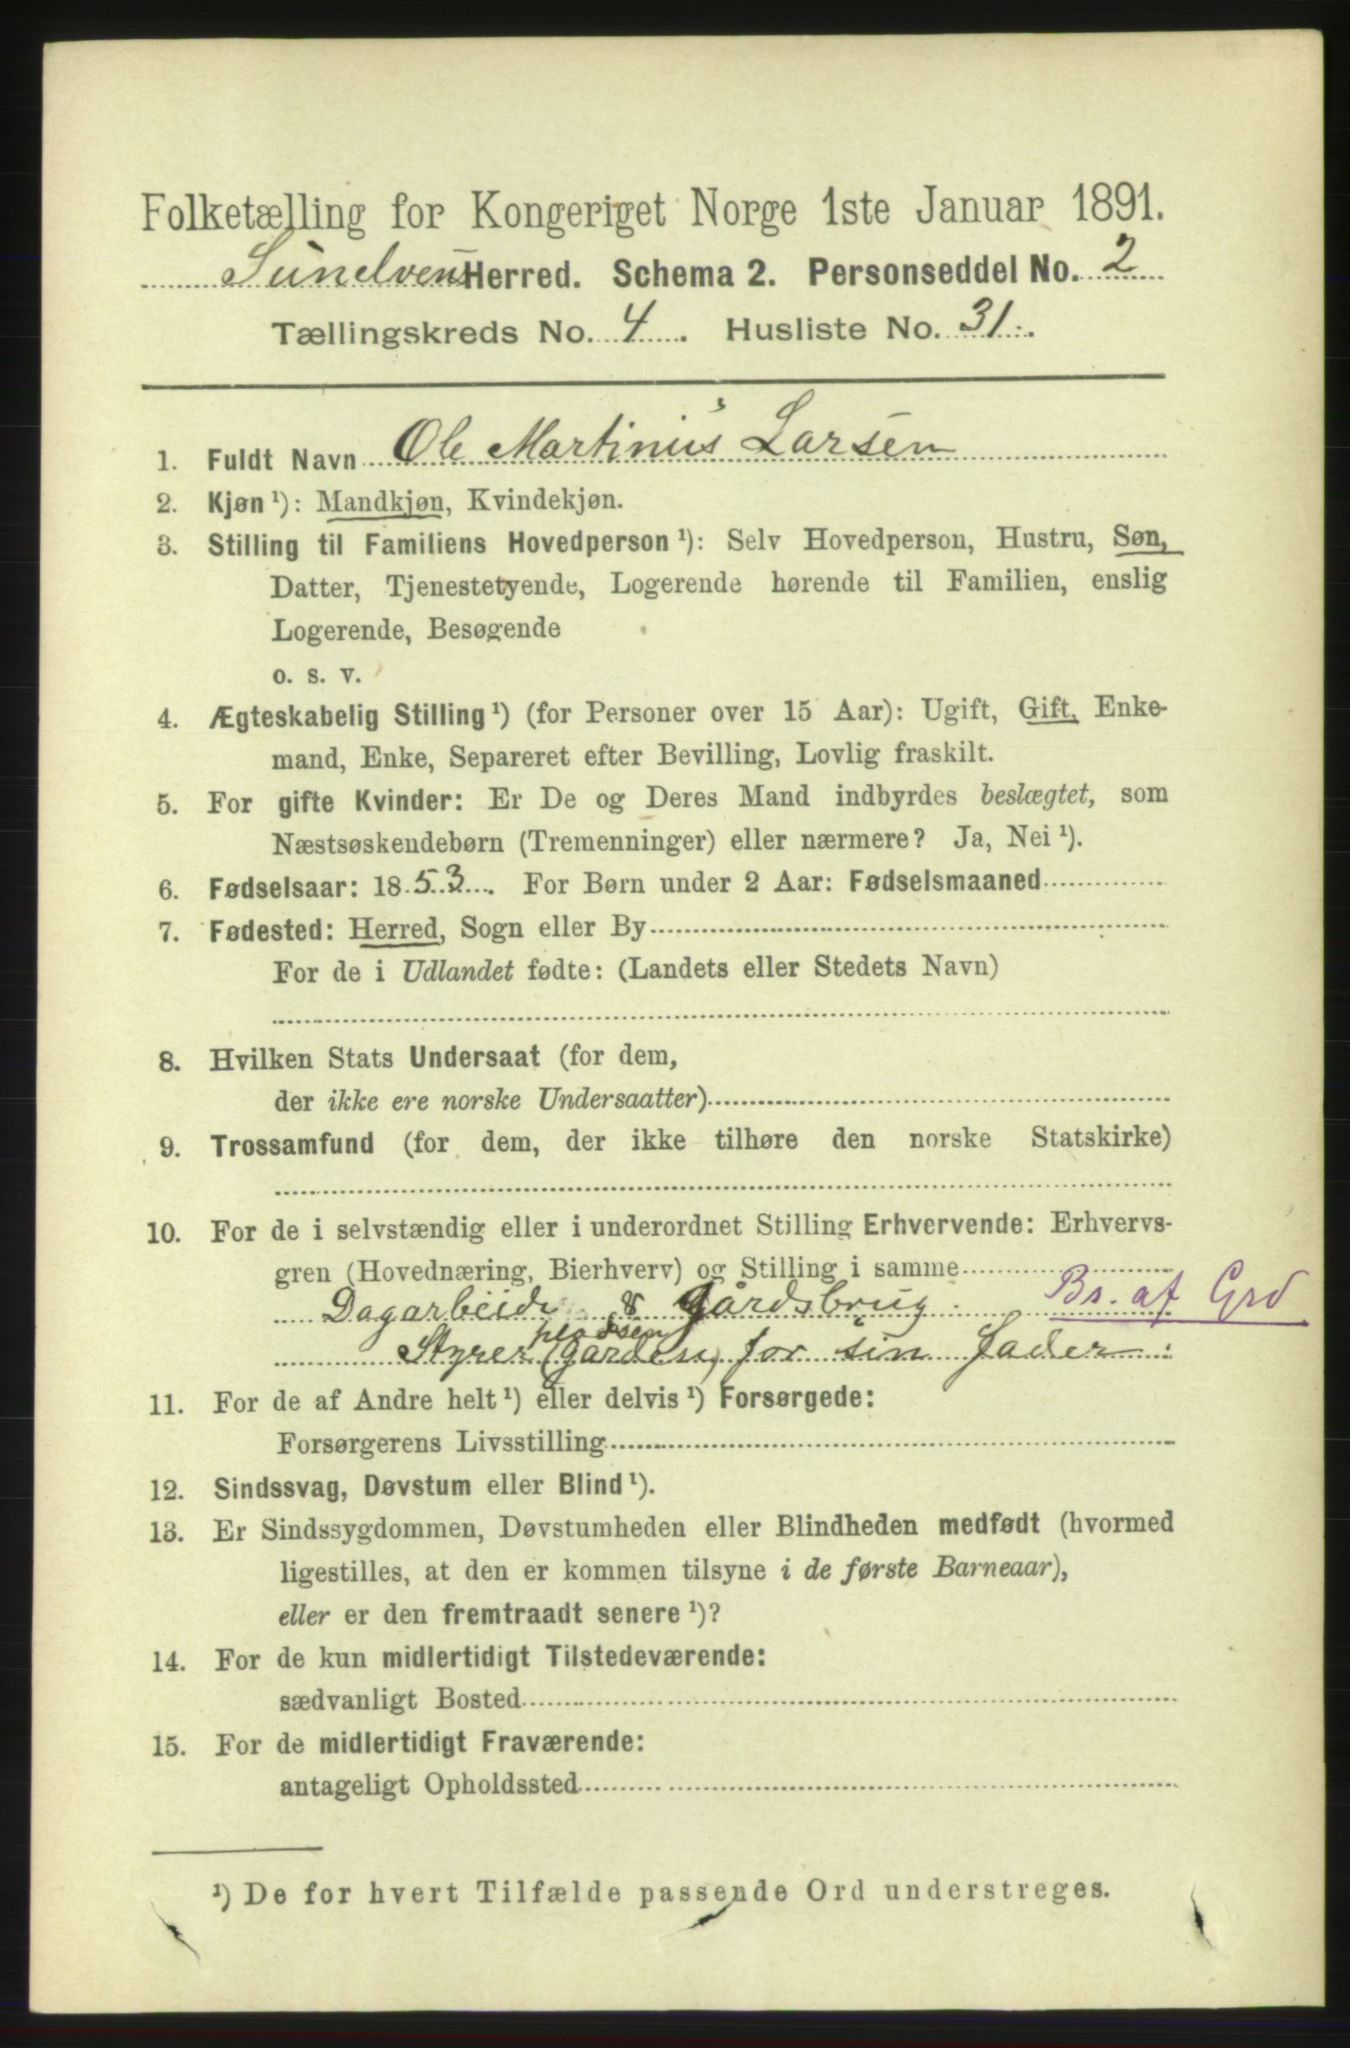 Folketælling for Kongeriget Norge 1ste Januar 1891.
Sunelvens Herred. Schema 2. Personseddel No. 2
Tællingskreds No. 4. Husliste No. 31.
1. Fuldt Navn Ole Martinius Larsen
2. Kjøn ¹): Mandkjøn, Kvindekjøn.
3. Stilling til Familiens Hovedperson ¹): Selv Hovedperson, Hustru, Søn,
Datter, Tjenestetyende, Logerende hørende til Familien, enslig
Logerende, Besøgende
o. s. v.
4. Ægteskabelig Stilling ¹) (for Personer over 15 Aar): Ugift, Gift, Enke-
mand, Enke, Separeret efter Bevilling, Lovlig fraskilt.
5. For gifte Kvinder: Er De og Deres Mand indbyrdes beslægtet, som
Næstsøskendebørn (Tremenninger) eller nærmere? Ja, Nei ¹).
6. Fødselsaar: 1853. For Børn under 2 Aar: Fødselsmaaned
7. Fødested: Herred, Sogn eller By
For de i Udlandet fødte: (Landets eller Stedets Navn)
8. Hvilken Stats Undersaat (for dem,
der ikke ere norske Undersaatter)
9. Trossamfund (for dem, der ikke tilhøre den norske Statskirke)
10. For de i selvstændig eller i underordnet Stilling Erhvervende: Erhvervs-
gren (Hovednæring, Bierhverv) og Stilling i samme
Dagarbeide & Gårdsbrug. Bs. af Grd
pladsen
Styrer (gården) for sin Fader.
11. For de af Andre helt ¹) eller delvis ¹) Forsørgede:
Forsørgerens Livsstilling
12. Sindssvag, Døvstum eller Blind ¹).
13. Er Sindssygdommen, Døvstumheden eller Blindheden medfødt (hvormed
ligestilles, at den er kommen tilsyne i de første Barneaar),
eller er den fremtraadt senere ¹)?
14. For de kun midlertidigt Tilstedeværende:
sædvanligt Bosted
15. For de midlertidigt Fraværende:
antageligt Opholdssted
¹) De for hvert Tilfælde passende Ord understreges.